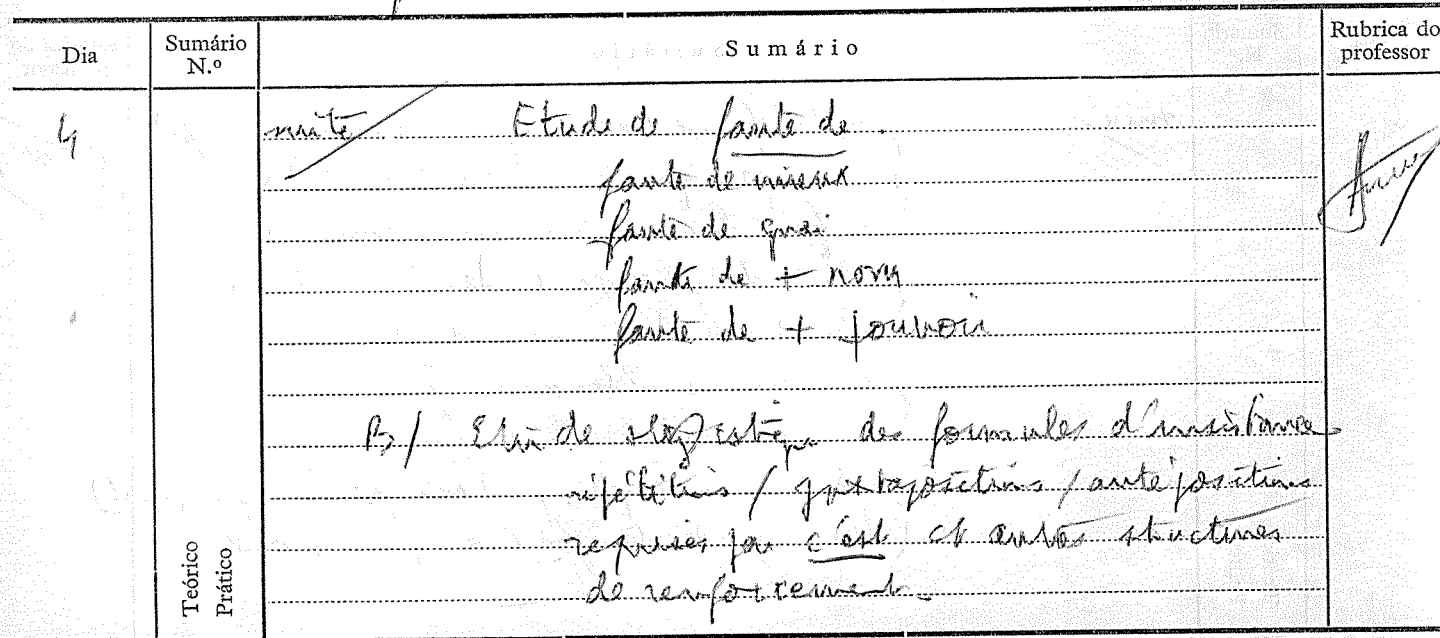 Dia
Sumário N.º
Sumário
Rubrica do professor
4
suite Etude de faute de.
faute de mieux
faute de quoi
faute de + nom
faute de + pouvoir
B/ Etude des formules d'insistance
répétitions / juxtapositions / antépositions
reprises par c'est et autres structures
de renforcement.
Teórico
Prático